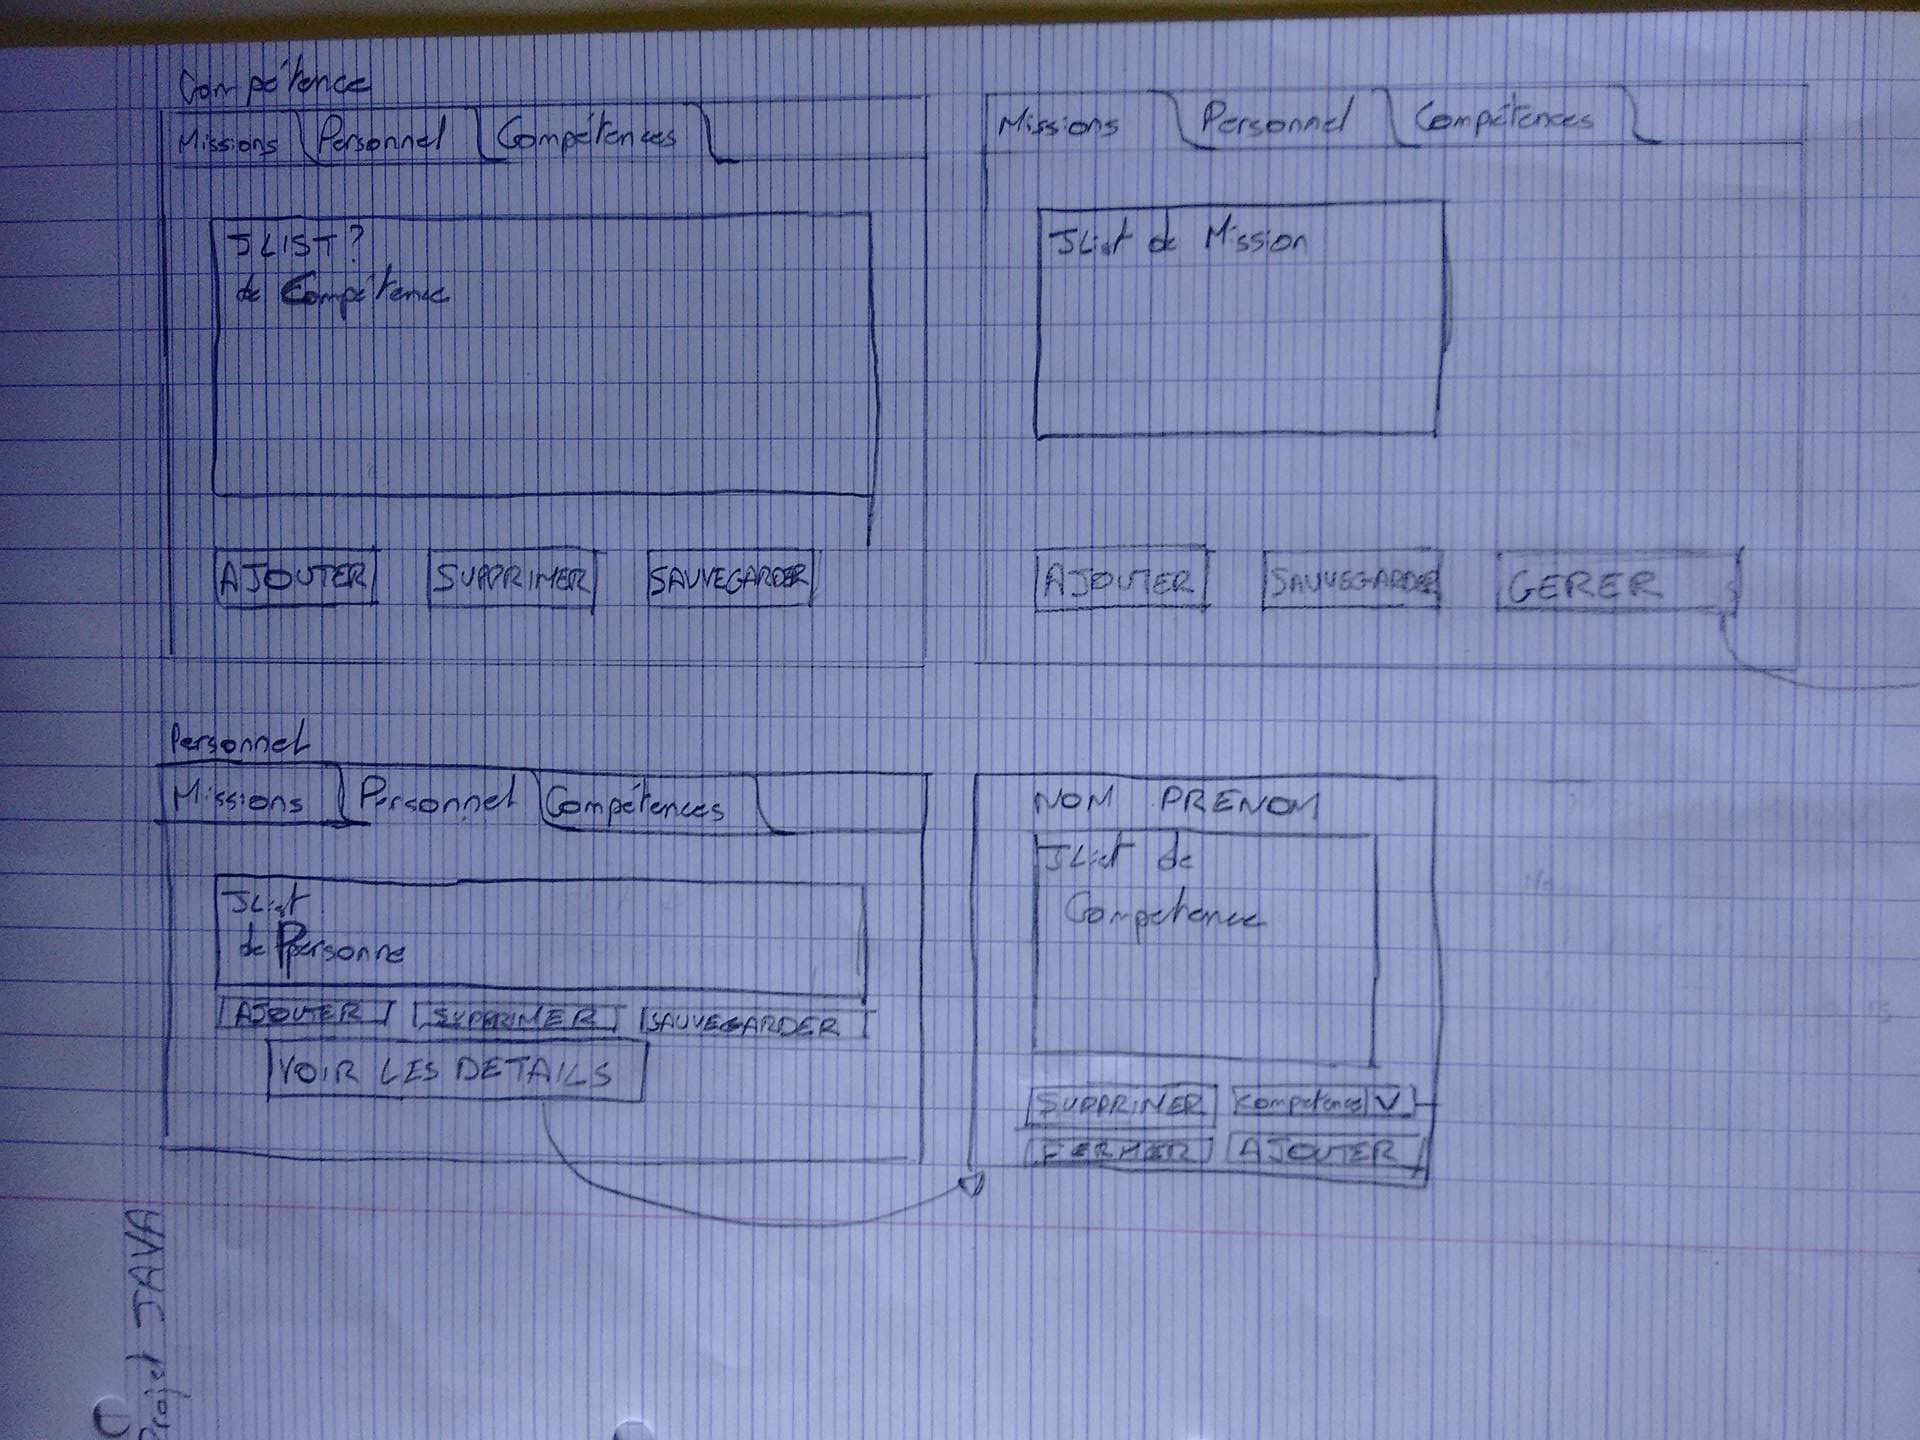 Compétence
Missions Personnel Compétences
JLIST?
de Compétence
AJOUTER SUPPRIMER SAUVEGARDER
Missions Personnel Compétences
JList de Mission
AJOUTER SAUVEGARDER GERER
Personnel
Missions Personnel Compétences
JList
de Ppersonne
AJOUTER SUPPRIMER SAUVEGARDER
VOIR LES DETAILS
NOM PRENOM
JList de
Competence
SUPPRIMER Competences V
FERMER AJOUTER
Projet JAVA